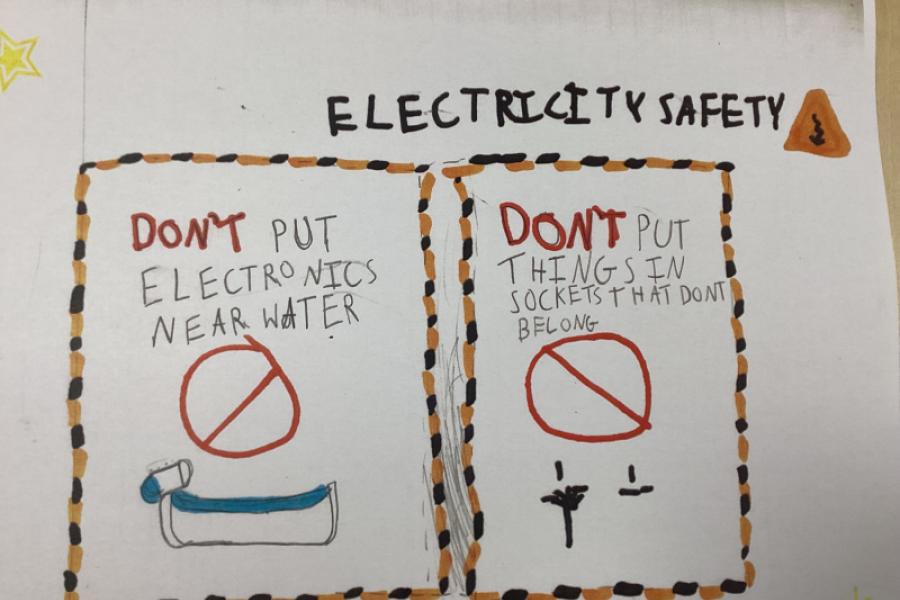 ELECTRICITY SAFETY
DON'T PUT
ELECTRONICS
NEAR WATER.
DON'T PUT
THINGS IN
SOCKETS THAT DONT
BELONG